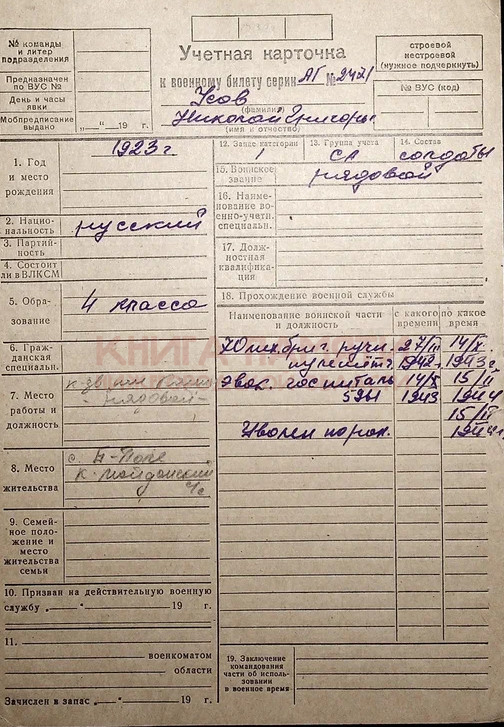 № команды
и литер
подразделения
Предназначен
по ВУС №
День и часы
явки
Мобпредписание
выдано „ “ 19 г.
Учетная карточка
к военному билету серии АГ № 2421
Усов
(фамилия)
Николай Григорь
(имя и отчество)
строевой
нестроевой
(нужное подчеркнуть)
№ ВУС (код)
1. Год
и место
рождения
1923 г.
2. Нацио-
нальность
русский
3. Партий-
ность
4. Состоит
ли в ВЛКСМ
5. Обра-
зование
4 класса
6. Граж-
данская
специальн.
7. Место
работы и
должность
рядовой
8. Место
жительства
с.
к-майданский
с/с
9. Семей-
ное поло-
жение и
место
жительства
семьи
10. Призван на действительную военную
службу „ “ 19 г.
11.
военкоматом
области
Зачислен в запас „ “ 19 г.
12. Запас категории
1
13. Группа учета
СА
14. Состав
солдаты
15. Воинское
звание
рядовой
16. Наиме-
нование во-
енно-учетн.
специальн.
17. Долж-
ностная
квалифика-
ция
18. Прохождение военной службы
Наименование воинской части
и должность
с какого
времени
по какое
время
70 бриг. ручн. 27/II 14/X
пулемётч. 1942 г. 1943 г.
эвак. госпиталь 14/X 15/II
5391 1943 1944
15/II
Уволен по ран. 1944 г.
19. Заключение
командования
части об исполь-
зовании
в военное время
КНИГА ПАМЯТИ